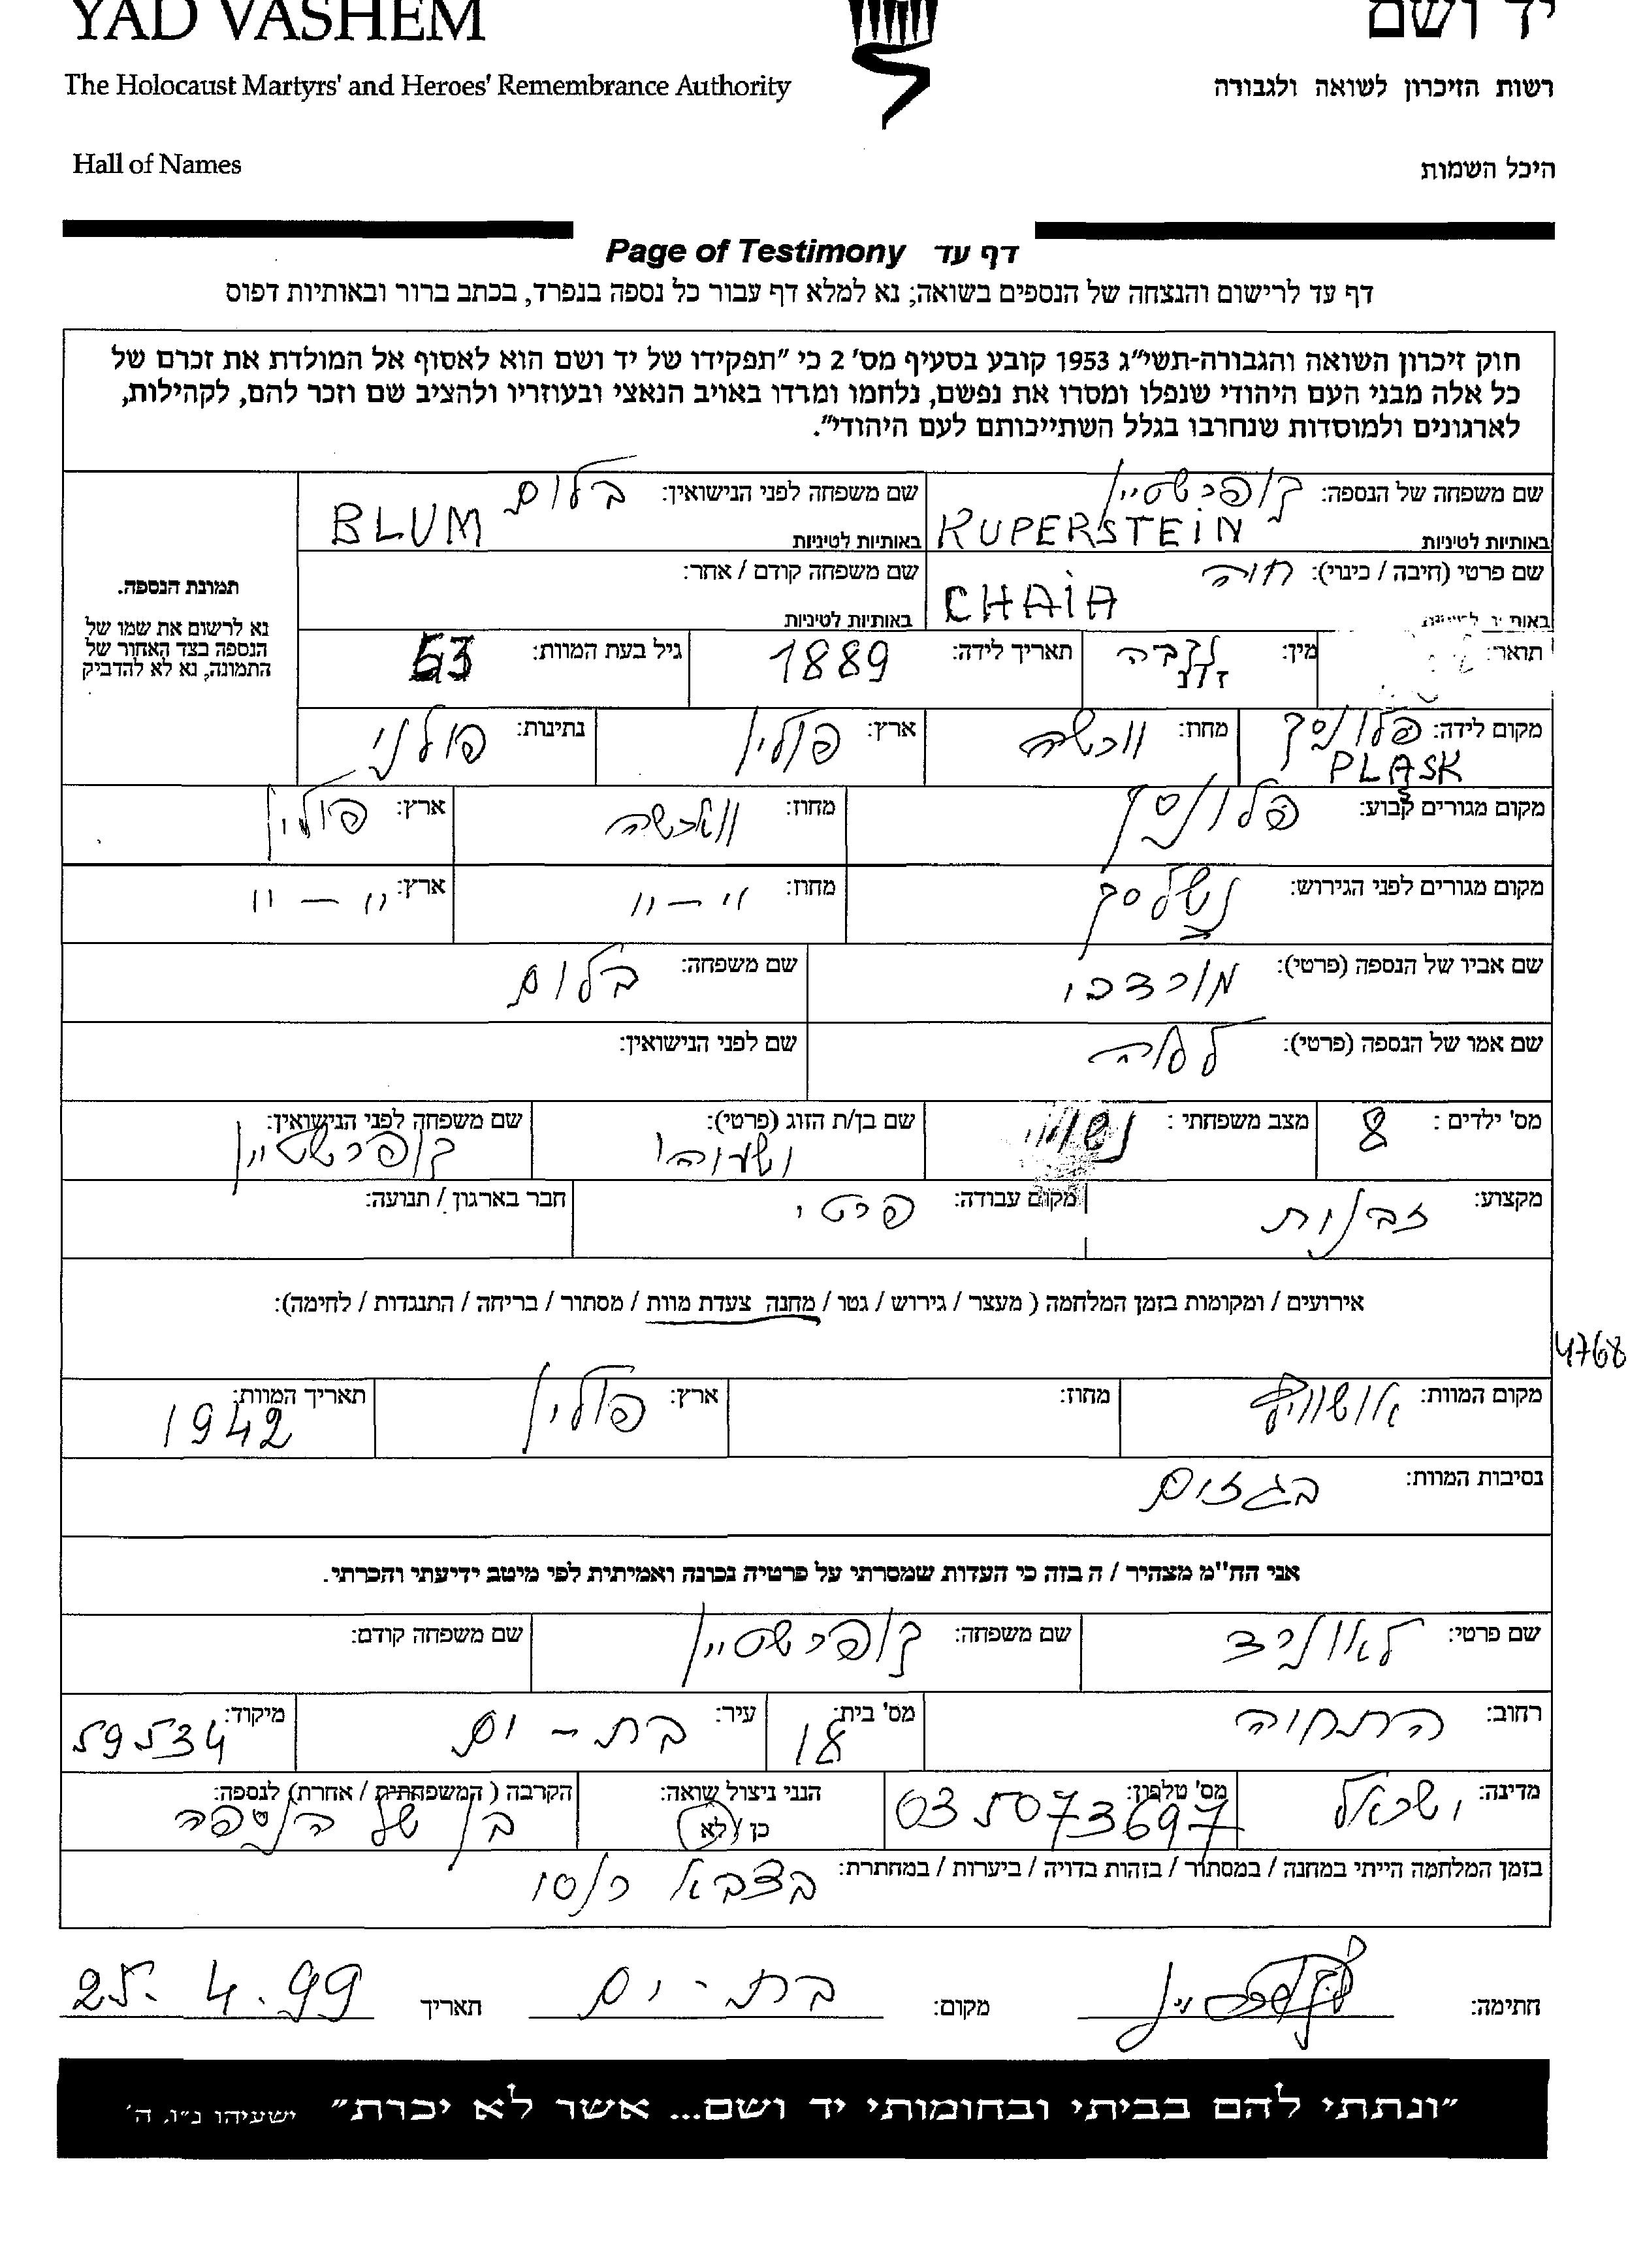 YAD VASHEM יד ושם
The Holocaust Martyrs' and Heroes' Remembrance Authority רשות הזיכרון לשואה ולגבורה
Hall of Names היכל השמות
Page of Testimony דף עד
דף עד לרישום והנצחה של הנספים בשואה; נא למלא דף עבור כל נספה בנפרד, בכתב ברור ובאותיות דפוס
חוק זיכרון השואה והגבורה-תשי"ג 1953 קובע בסעיף מס' 2 כי "תפקידו של יד ושם הוא לאסוף אל המולדת את זכרם של
כל אלה מבני העם היהודי שנפלו ומסרו את נפשם, נלחמו ומרדו באויב הנאצי ובעוזריו ולהציב שם וזכר להם, לקהילות,
לארגונים ולמוסדות שנחרבו בגלל השתייכותם לעם היהודי".
שם משפחה של הנספה: קופרשטיין שם משפחה לפני הנישואין: בלום
באותיות לטיניות KUPERSTEiN באותיות לטיניות BLUM
שם פרטי (חיבה / כינוי): חיה שם משפחה קודם / אחר:
CHAiA באותיות לטיניות
תמונת הנספה.
נא לרשום את שמו של
הנספה בצד האחור של
התמונה, נא לא להדביק
תואר: מין: נקבה תאריך לידה: 1889 גיל בעת המוות: 53
מקום לידה: פלונסק מחוז: וורשה ארץ: פולין נתינות: פולני
מקום מגורים קבוע: פלונסק מחוז: ווארשה ארץ: פולין
מקום מגורים לפני הגירוש: מחוז: " — " ארץ: " — "
שם אביו של הנספה (פרטי): מורדכי שם משפחה: בלום
שם אמו של הנספה (פרטי): שם לפני הנישואין:
מס' ילדים: 8 מצב משפחתי: נשוי שם בן/ת הזוג (פרטי): ישעיהו שם משפחה לפני הנישואין: קופרשטיין
מקצוע: זבנות מקום עבודה: פרטי חבר בארגון / תנועה:
אירועים / ומקומות בזמן המלחמה ( מעצר / גירוש / גטו / מחנה צעדת מוות / מסתור / בריחה / התנגדות / לחימה):
4768
מקום המוות: אושוויץ מחוז: ארץ: פולין תאריך המוות: 1942
נסיבות המוות: בגזים
אני הח"מ מצהיר / ה בזה כי העדות שמסרתי על פרטיה נכונה ואמיתית לפי מיטב ידיעתי והכרתי.
שם פרטי: לאונרד שם משפחה: קופרשטיין שם משפחה קודם:
רחוב: התחיה מס' בית: 18 עיר: בת - ים מיקוד: 59534
מדינה: ישראל מס' טלפון: 03 5073697 הנני ניצול שואה: כן / לא הקרבה ( המשפחתית / אחרת) לנספה: בן של הנספה
בזמן המלחמה הייתי במחנה / במסתור / בזהות בדויה / ביערות / במחתרת: בצבא רוסי
חתימה: קופרשטיין מקום: בת - ים תאריך 25. 4. 99
"ונתתי להם בביתי ובחומותי יד ושם... אשר לא יכרת" ישעיהו נ"ו, ה'